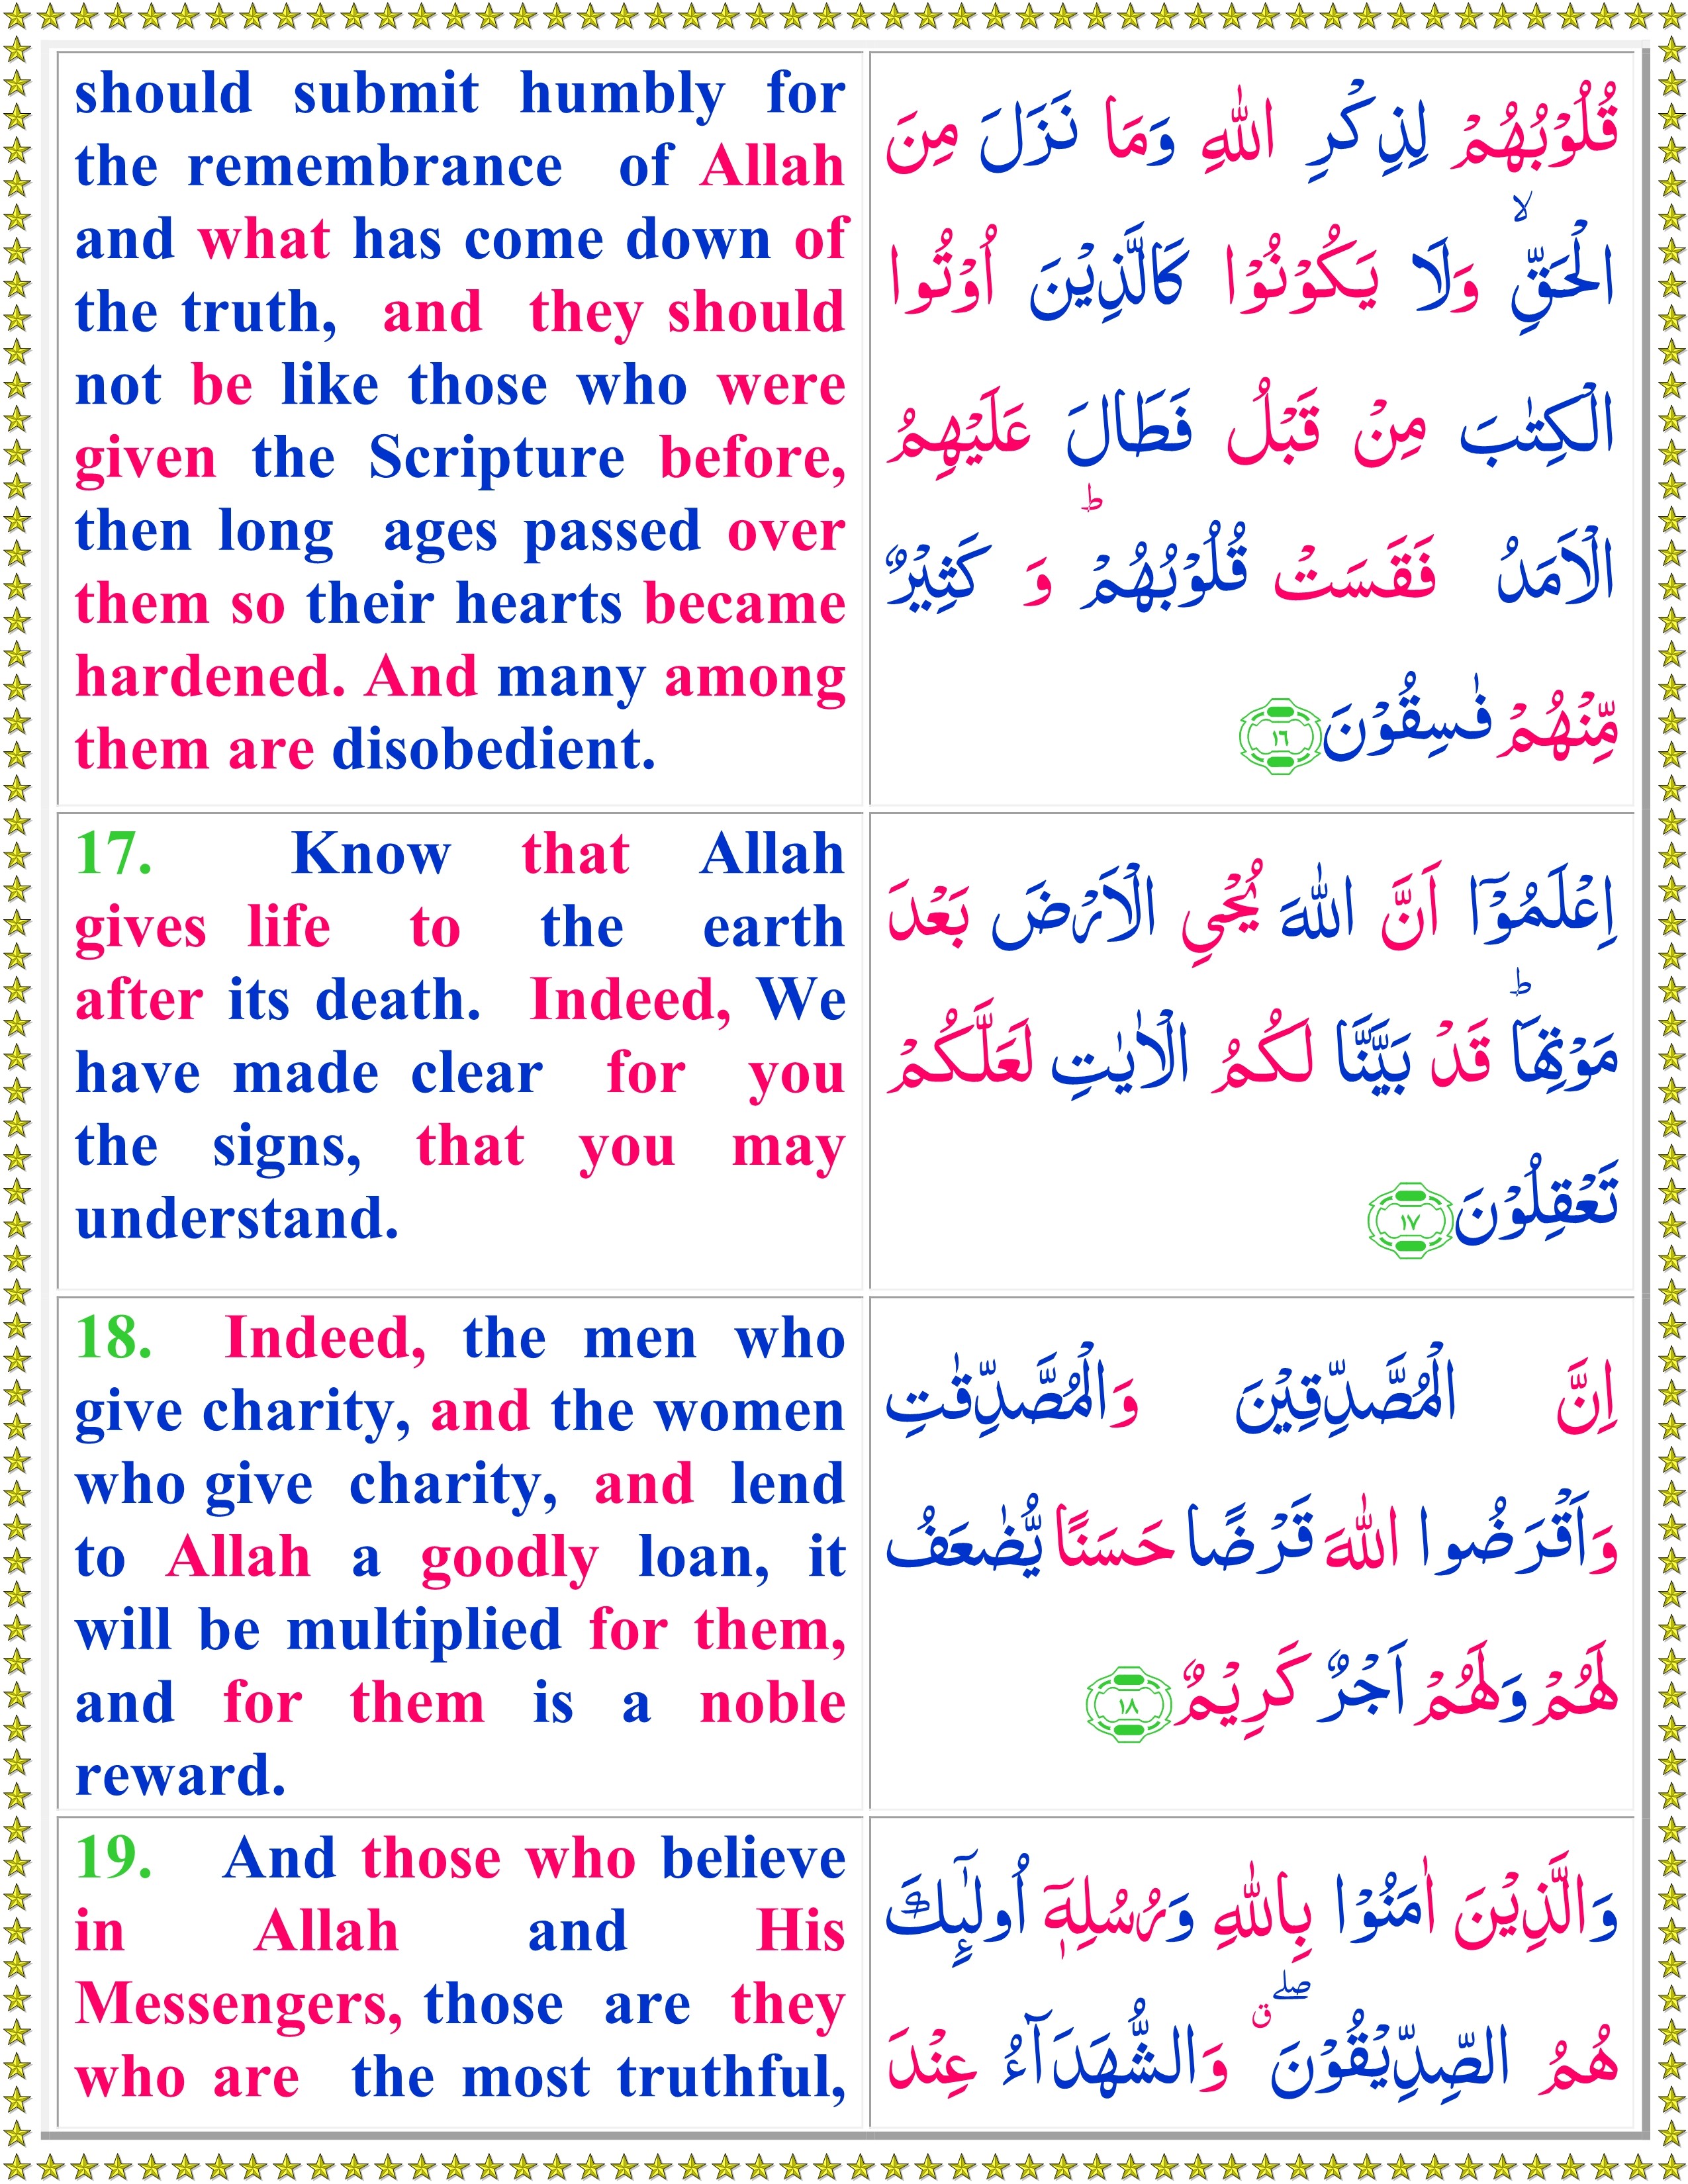 should submit humbly for
the remembrance of Allah
and what has come down of
the truth, and they should
not be like those who were
given the Scripture before,
then long ages passed over
them so their hearts became
hardened. And many among
them are disobedient.
قُلُوْبُهُمْ لِذِكْرِ اللّٰهِ وَمَا نَزَلَ مِنَ
الْحَقِّ ۙ وَلَا يَكُوْنُوْا كَالَّذِيْنَ اُوْتُوا
الْكِتٰبَ مِنْ قَبْلُ فَطَالَ عَلَيْهِمُ
الْاَمَدُ فَقَسَتْ قُلُوْبُهُمْ ؕ وَ كَثِيْرٌ
مِّنْهُمْ فٰسِقُوْنَ ١٦
17. Know that Allah
gives life to the earth
after its death. Indeed, We
have made clear for you
the signs, that you may
understand.
اِعْلَمُوْۤا اَنَّ اللّٰهَ يُحْيِ الْاَرْضَ بَعْدَ
مَوْتِهَا ؕ قَدْ بَيَّنَّا لَكُمُ الْاٰيٰتِ لَعَلَّكُمْ
تَعْقِلُوْنَ ١٧
18. Indeed, the men who
give charity, and the women
who give charity, and lend
to Allah a goodly loan, it
will be multiplied for them,
and for them is a noble
reward.
اِنَّ الْمُصَّدِّقِيْنَ وَالْمُصَّدِّقٰتِ
وَاَقْرَضُوا اللّٰهَ قَرْضًا حَسَنًا يُّضٰعَفُ
لَهُمْ وَلَهُمْ اَجْرٌ كَرِيْمٌ ١٨
19. And those who believe
in Allah and His
Messengers, those are they
who are the most truthful,
وَالَّذِيْنَ اٰمَنُوْا بِاللّٰهِ وَرُسُلِهٖۤ اُولٰٓئِكَ
هُمُ الصِّدِّيْقُوْنَ ۖ ق وَالشُّهَدَآءُ عِنْدَ